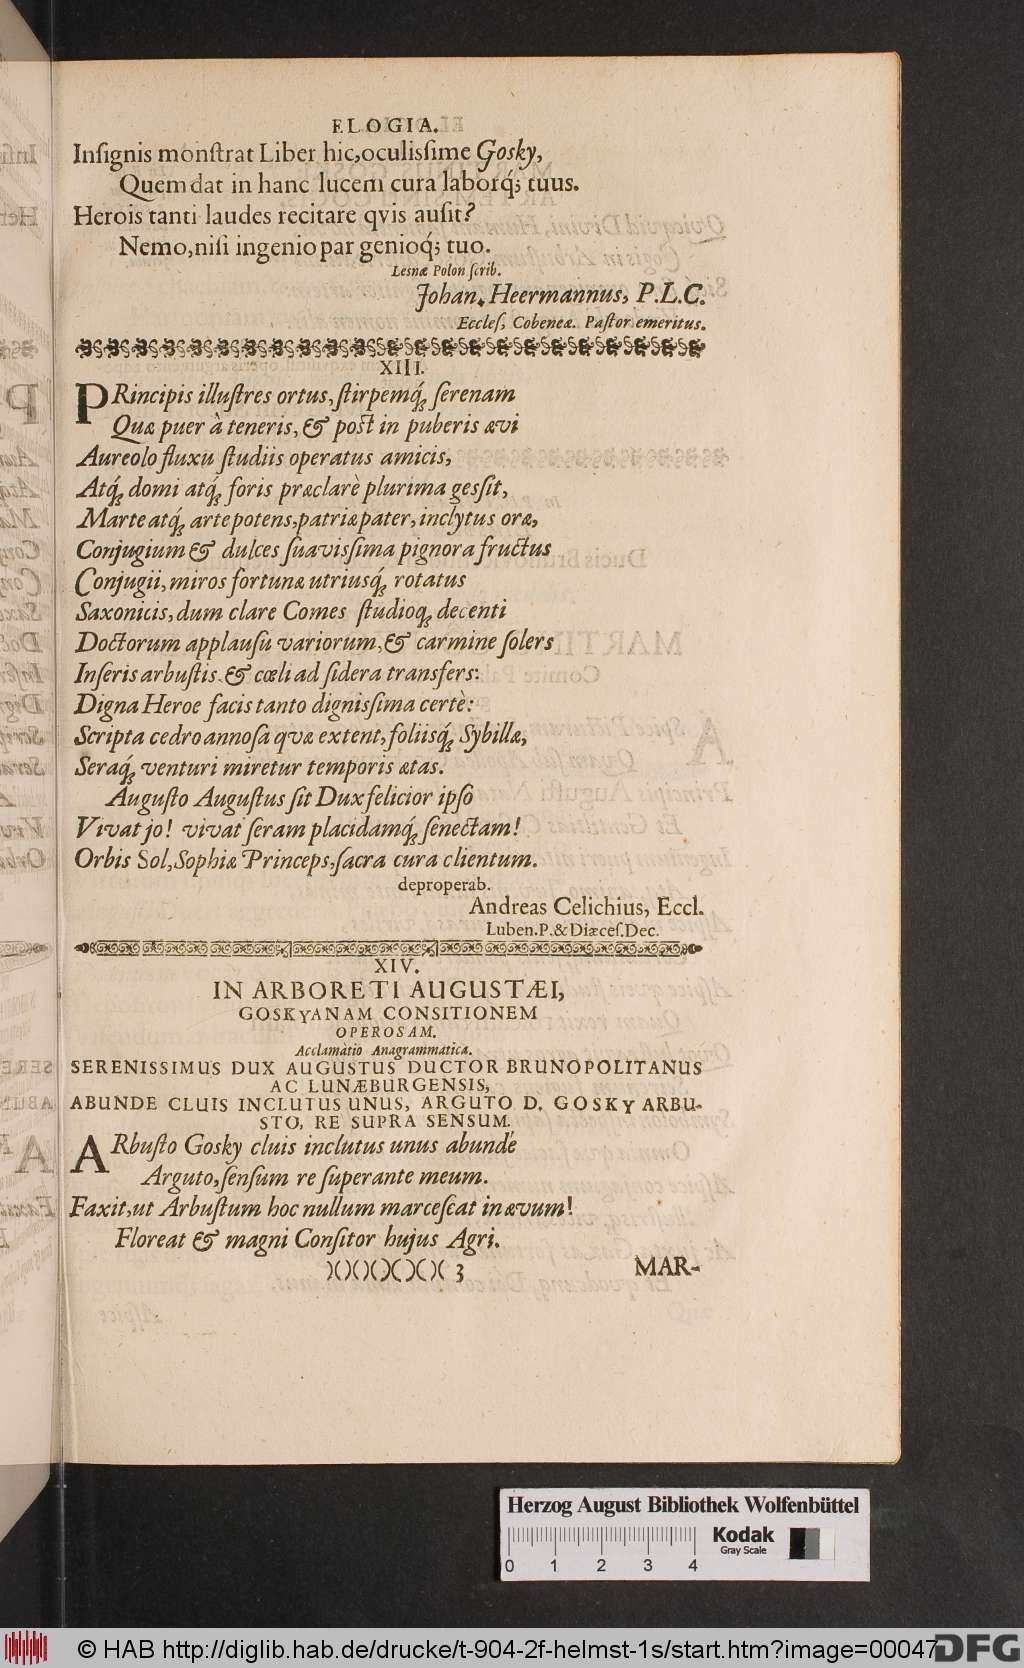 ELOGIA.
Inſignis monſtrat Liber hic, oculisſime Gosky,
Quem dat in hanc lucem cura laborq́; tuus.
Herois tanti laudes recitare qvis auſit?
Nemo, niſi ingenio par genioq́; tuo.
Lesnæ Polon ſcrib.
Johan. Heermannus, P.L.C.
Eccleſ, Cobeneæ. Paſtor emeritus.
XIII.
PRincipis illuſtres ortus, ſtirpemq́; ſerenam
Quæ puer à teneris, & poſt in puberis ævi
Aureolo fluxu ſtudiis operatus amicis,
Atq́; domi atq́; foris præclarè plurima gesſit,
Marte atq́; arte potens, patriæ pater, inclytus oræ,
Conjugium & dulces ſuavisſima pignora fructus
Conjugii, miros fortunæ utriusq́; rotatus
Saxonicis, dum clare Comes ſtudioq; decenti
Doctorum applauſu variorum, & carmine ſolers
Inſeris arbuſtis. & cœli ad ſidera transfers:
Digna Heroe facis tanto dignisſima certè:
Scripta cedro annoſa qvæ extent, foliisq́; Sybillæ,
Seraq́; venturi miretur temporis ætas.
Auguſto Auguſtus ſit Dux felicior ipſo
Vivat jo! vivat ſeram placidamq́; ſenectam!
Orbis Sol, Sophiæ Princeps, ſacra cura clientum.
deproperab.
Andreas Celichius, Eccl.
Luben. P. & Diæceſ. Dec.
XIV.
IN ARBORETI AUGUSTÆI,
GOSKYANAM CONSITIONEM
OPEROSAM.
Acclamàtio Anagrammatica.
SERENISSIMUS DUX AUGUSTUS DUCTOR BRUNOPOLITANUS
AC LUNÆBURGENSIS,
ABUNDE CLUIS INCLUTUS UNUS, ARGUTO D. GOSKY ARBU-
STO, RE SUPRA SENSUM.
ARbuſto Gosky cluis inclutus unus abundé
Arguto, ſenſum re ſuperante meum.
Faxit, ut Arbuſtum hoc nullum marceſcat in ævum!
Floreat & magni Conſitor hujus Agri.
)()()()()()()( 3 MAR-
Herzog August Bibliothek Wolfenbüttel
Kodak
Gray Scale
0 1 2 3 4
© HAB http://diglib.hab.de/drucke/t-904-2f-helmst-1s/start.htm?image=00047
DFG